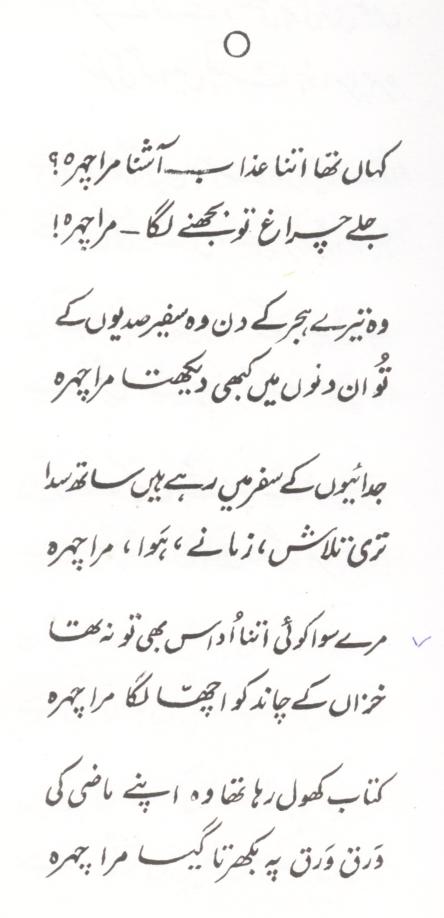 کہاں تھا اتنا عذاب آشنا مرا چہرہ؟
جلے چراغ تو بجھنے لگا ـ مرا چہرہ!
وہ تیرے ہجر کے دن وہ سفیر صدیوں کے
تُو ان دنوں میں کبھی دیکھتا مرا چہرہ
جدائیوں کے سفر میں رہے ہیں ساتھ سدا
تری تلاش، زمانے، ہَوا، مرا چہرہ
مرے سوا کوئی اتنا اُداس بھی تو نہ تھا
خزاں کے چاند کو اچھّا لگا مرا چہرہ
کتاب کھول رہا تھا وہ اپنے ماضی کی
وَرق وَرق پہ بکھرتا گیا مرا چہرہ